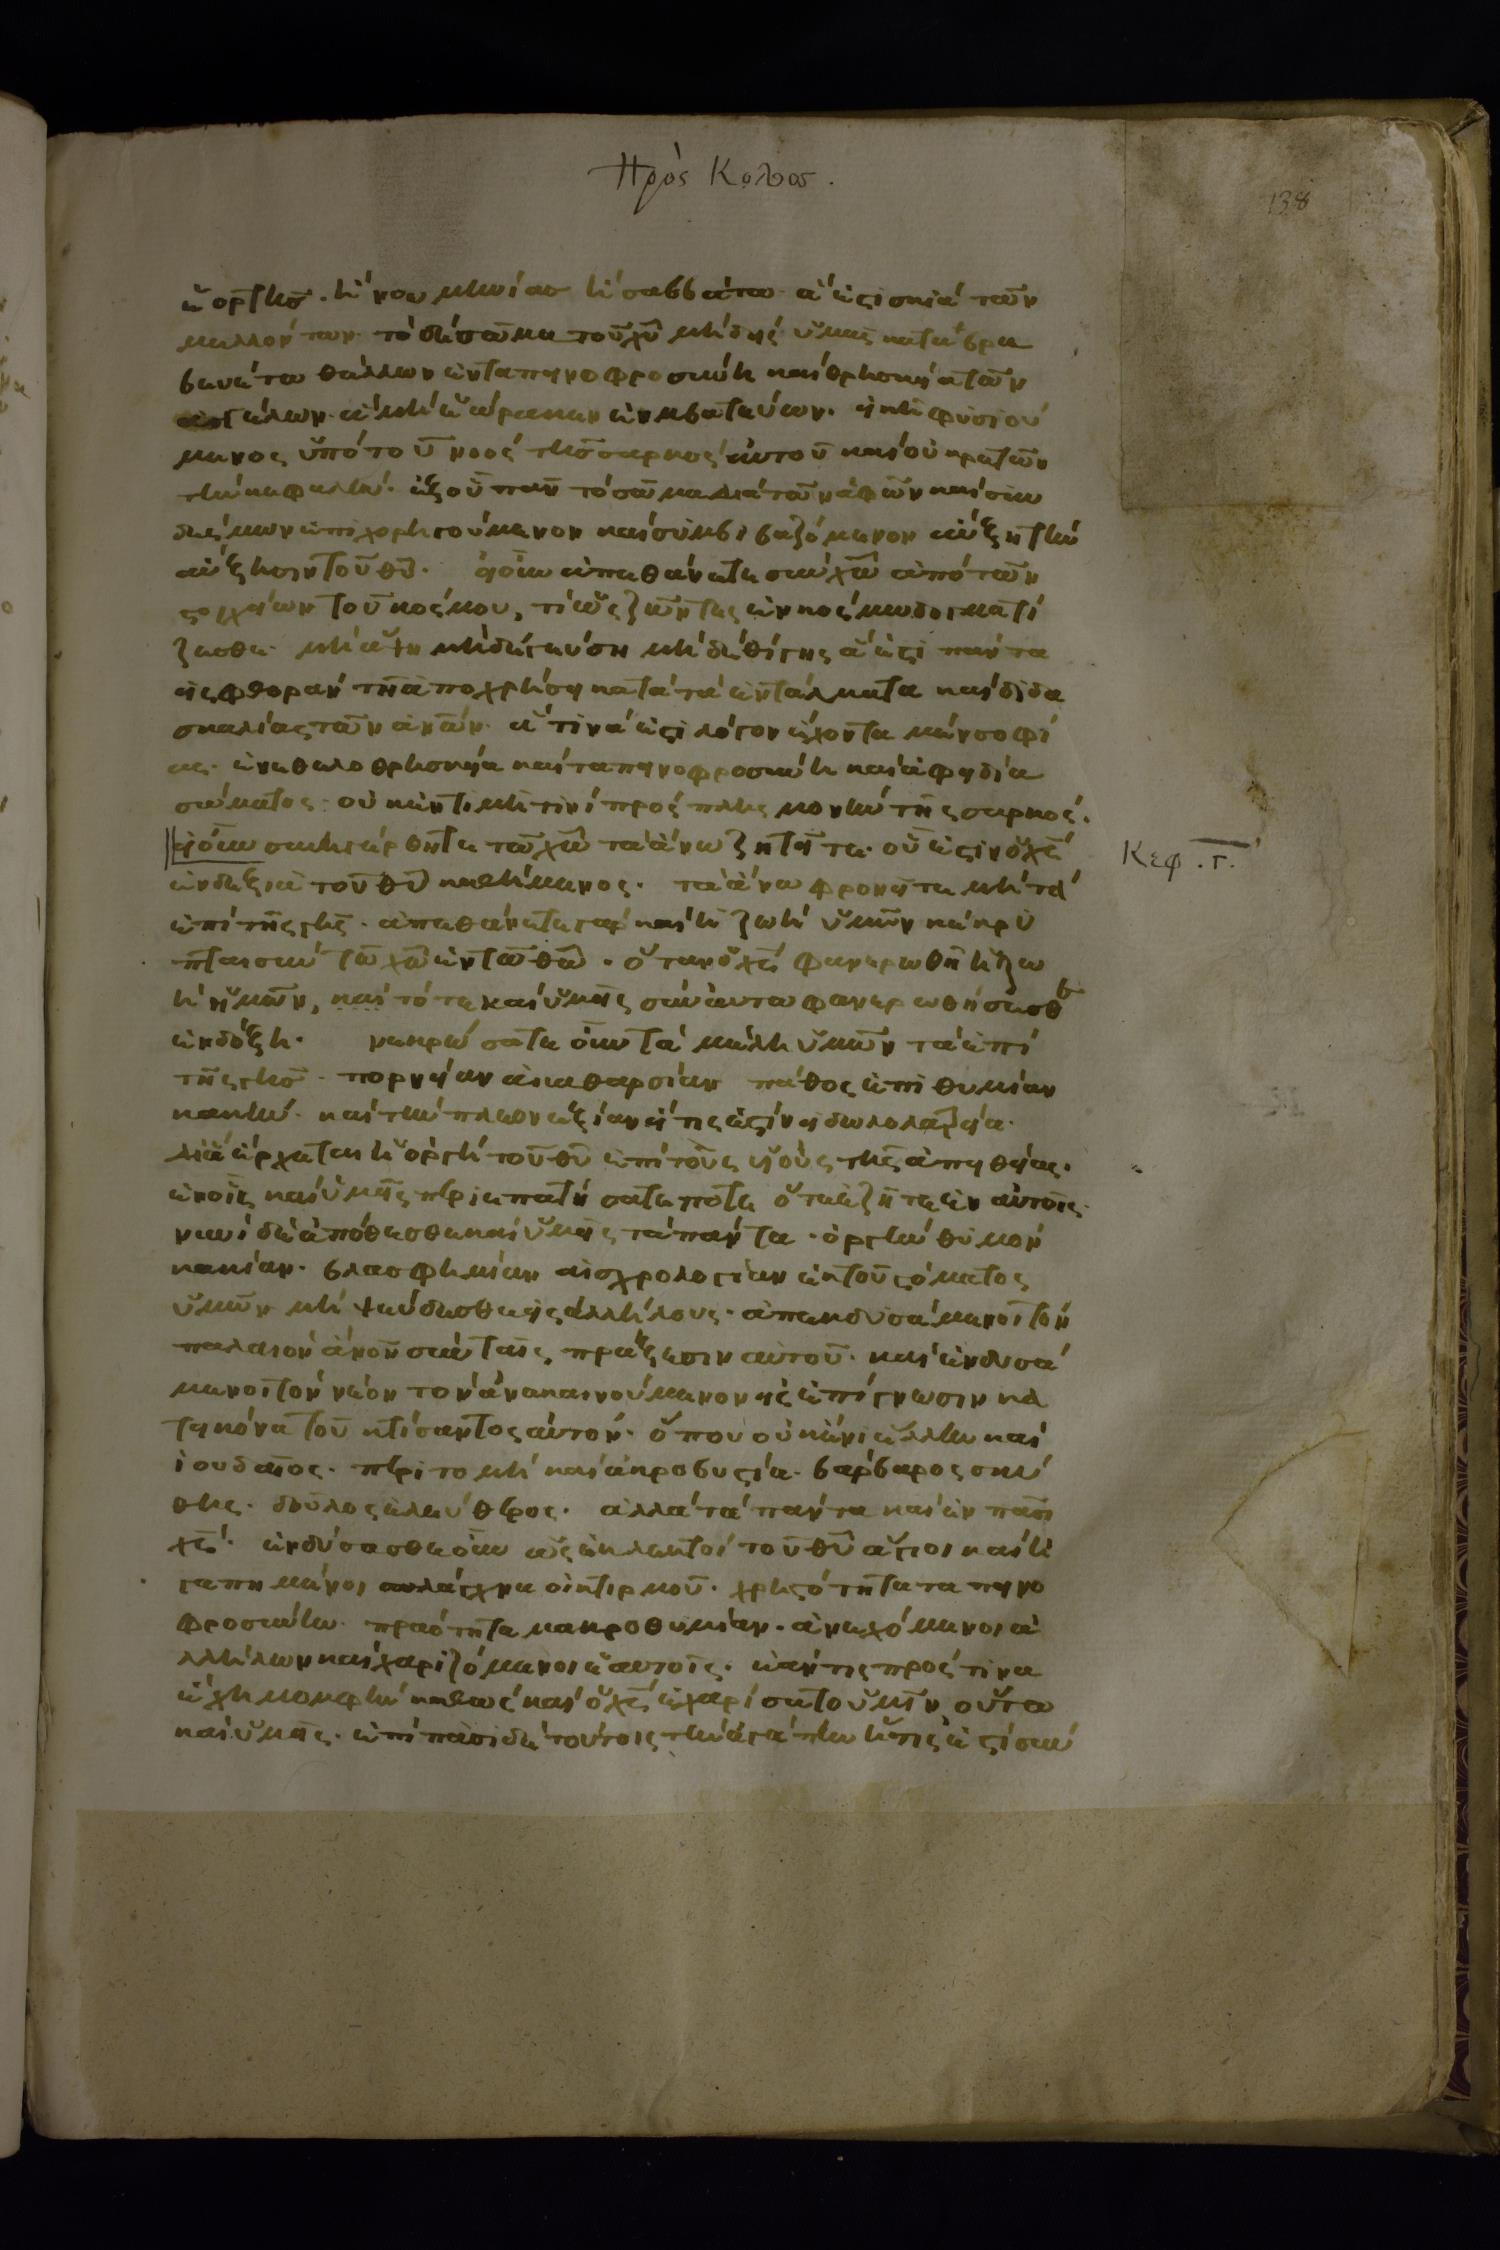 Πρὸς Κολοσ.
138
ἑορτῆς· ἢ νουμηνίας ἢ σαββάτων· ἅ ἐστι σκιὰ τῶν
μελλόντων· τὸ δὲ σῶμα τοῦ χῦ μηδεὶς ὑμᾶς καταβρα
βευέτω θέλων ἐν ταπεινοφροσύνη καὶ θρησκεία τῶν
ἀγγέλων· ἃ μὴ ἑώρακεν ἐμβατεύων· εἰκῆ φυσιού
μενος ὑπὸ τοῦ νοὸς τῆς σαρκὸς αὐτοῦ καὶ οὐ κρατῶν
τὴν κεφαλήν· ἐξ οὗ πᾶν τὸ σῶμα διὰ τῶν ἁφῶν καὶ συν
δέσμων ἐπιχορηγούμενον καὶ συμβιβαζόμενον αὔξει τὴν
αὔξησιν τοῦ θῦ· εἰ οὖν ἀπεθάνετε σὺν χῶ ἀπὸ τῶν
στοιχείων τοῦ κόσμου, τί ὡς ζῶντες ἐν κόσμω δογματί
ζεσθε· μὴ ἅψη μηδὲ γεύση μηδὲ θίγης ἅ ἐστι πάντα
εἰς φθορὰν τῆ ἀποχρήσει κατὰ τὰ ἐντάλματα καὶ διδα
σκαλίας τῶν ἀνῶν· ἅτινά ἐστι λόγον ἔχοντα μὲν σοφί
ας· ἐν ἐθελοθρησκεία καὶ ταπεινοφροσύνη καὶ ἀφειδία
σώματος· οὐκ ἐν τιμῆ τινὶ πρὸς πλησμονὴν τῆς σαρκός·
εἰ οὖν συνηγέρθητε τῶ χῶ τὰ ἄνω ζητεῖτε· οὗ ἐστιν ὁ χς
ἐν δεξιᾶ τοῦ θῦ καθήμενος· τὰ ἄνω φρονεῖτε μὴ τὰ
ἐπὶ τῆς γῆς· ἀπεθάνετε γὰρ καὶ ἡ ζωὴ ὑμῶν κέκρυ
πται σὺν τῶ χῶ ἐν τῶ θῶ· ὅταν ὁ χς φανερωθῆ ἡ ζω
ὴ ἡμῶν, καὶ τότε καὶ ὑμεῖς σὺν αὐτῶ φανερωθήσεσθε
ἐν δόξη· νεκρώσατε οὖν τὰ μέλη ὑμῶν τὰ ἐπὶ
τῆς γῆς· πορνείαν ἀκαθαρσίαν πάθος ἐπιθυμίαν
κακήν· καὶ τὴν πλεονεξίαν ἥτις ἐστὶν εἰδωλολατρεία·
δι' ἃ ἔρχεται ἡ ὀργὴ τοῦ θῦ ἐπὶ τοὺς υἱοὺς τῆς ἀπειθείας·
ἐν οἷς καὶ ὑμεῖς περιεπατήσατε ποτε ὅτε ἐζῆτε ἐν αὐτοῖς·
νυνὶ δὲ ἀπόθεσθε καὶ ὑμεῖς τὰ πάντα· ὀργὴν θυμὸν
κακίαν· βλασφημίαν αἰσχρολογίαν ἐκ τοῦ στόματος
ὑμῶν μὴ ψεύδεσθε εἰς ἀλλήλους· ἀπεκδυσάμενοι τὸν
παλαιὸν ἄνον σὺν ταῖς πράξεσιν αὐτοῦ· καὶ ἐνδυσά
μενοι τὸν νέον τὸν ἀνακαινούμενον εἰς ἐπίγνωσιν κα
τ εἰκόνα τοῦ κτίσαντος αὐτόν· ὅπου οὐκ ἔνι ἕλλην καὶ
ἰουδαῖος· περιτομὴ καὶ ἀκροβυστία· βάρβαρος σκύ
θης· δοῦλος ἐλεύθερος· ἀλλὰ τὰ πάντα καὶ ἐν πᾶσι
χς· ἐνδύσασθε οὖν ὡς ἐκλεκτοὶ τοῦ θῦ ἅγιοι καὶ ἠ
γαπημένοι σπλάγχνα οἰκτιρμοῦ· χρηστότητα ταπεινο
φροσύνην· πραότητα μακροθυμίαν· ἀνεχόμενοι ἀ
λλήλων καὶ χαριζόμενοι ἑαυτοῖς· ἐάν τις πρός τινα
ἔχη μομφὴν καθὼς καὶ ὁ χς ἐχαρίσατο ὑμῖν οὕτω
καὶ ὑμεῖς· ἐπὶ πᾶσι δὲ τούτοις τὴν ἀγάπην ἥτις ἐστὶ σύν
Κεφ. γ.